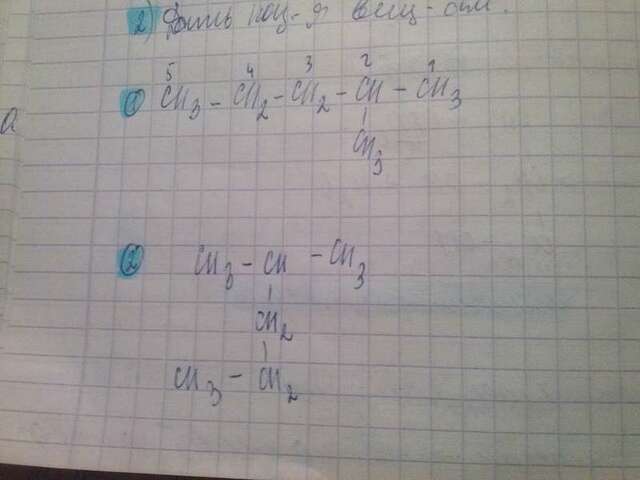 2) Дать наз-я вещ-ам.
5 4 3 2 1
① CH3 - CH2 - CH2 - CH - CH3
|
CH3
a
② CH3 - CH - CH3
|
CH2
|
CH3 - CH2